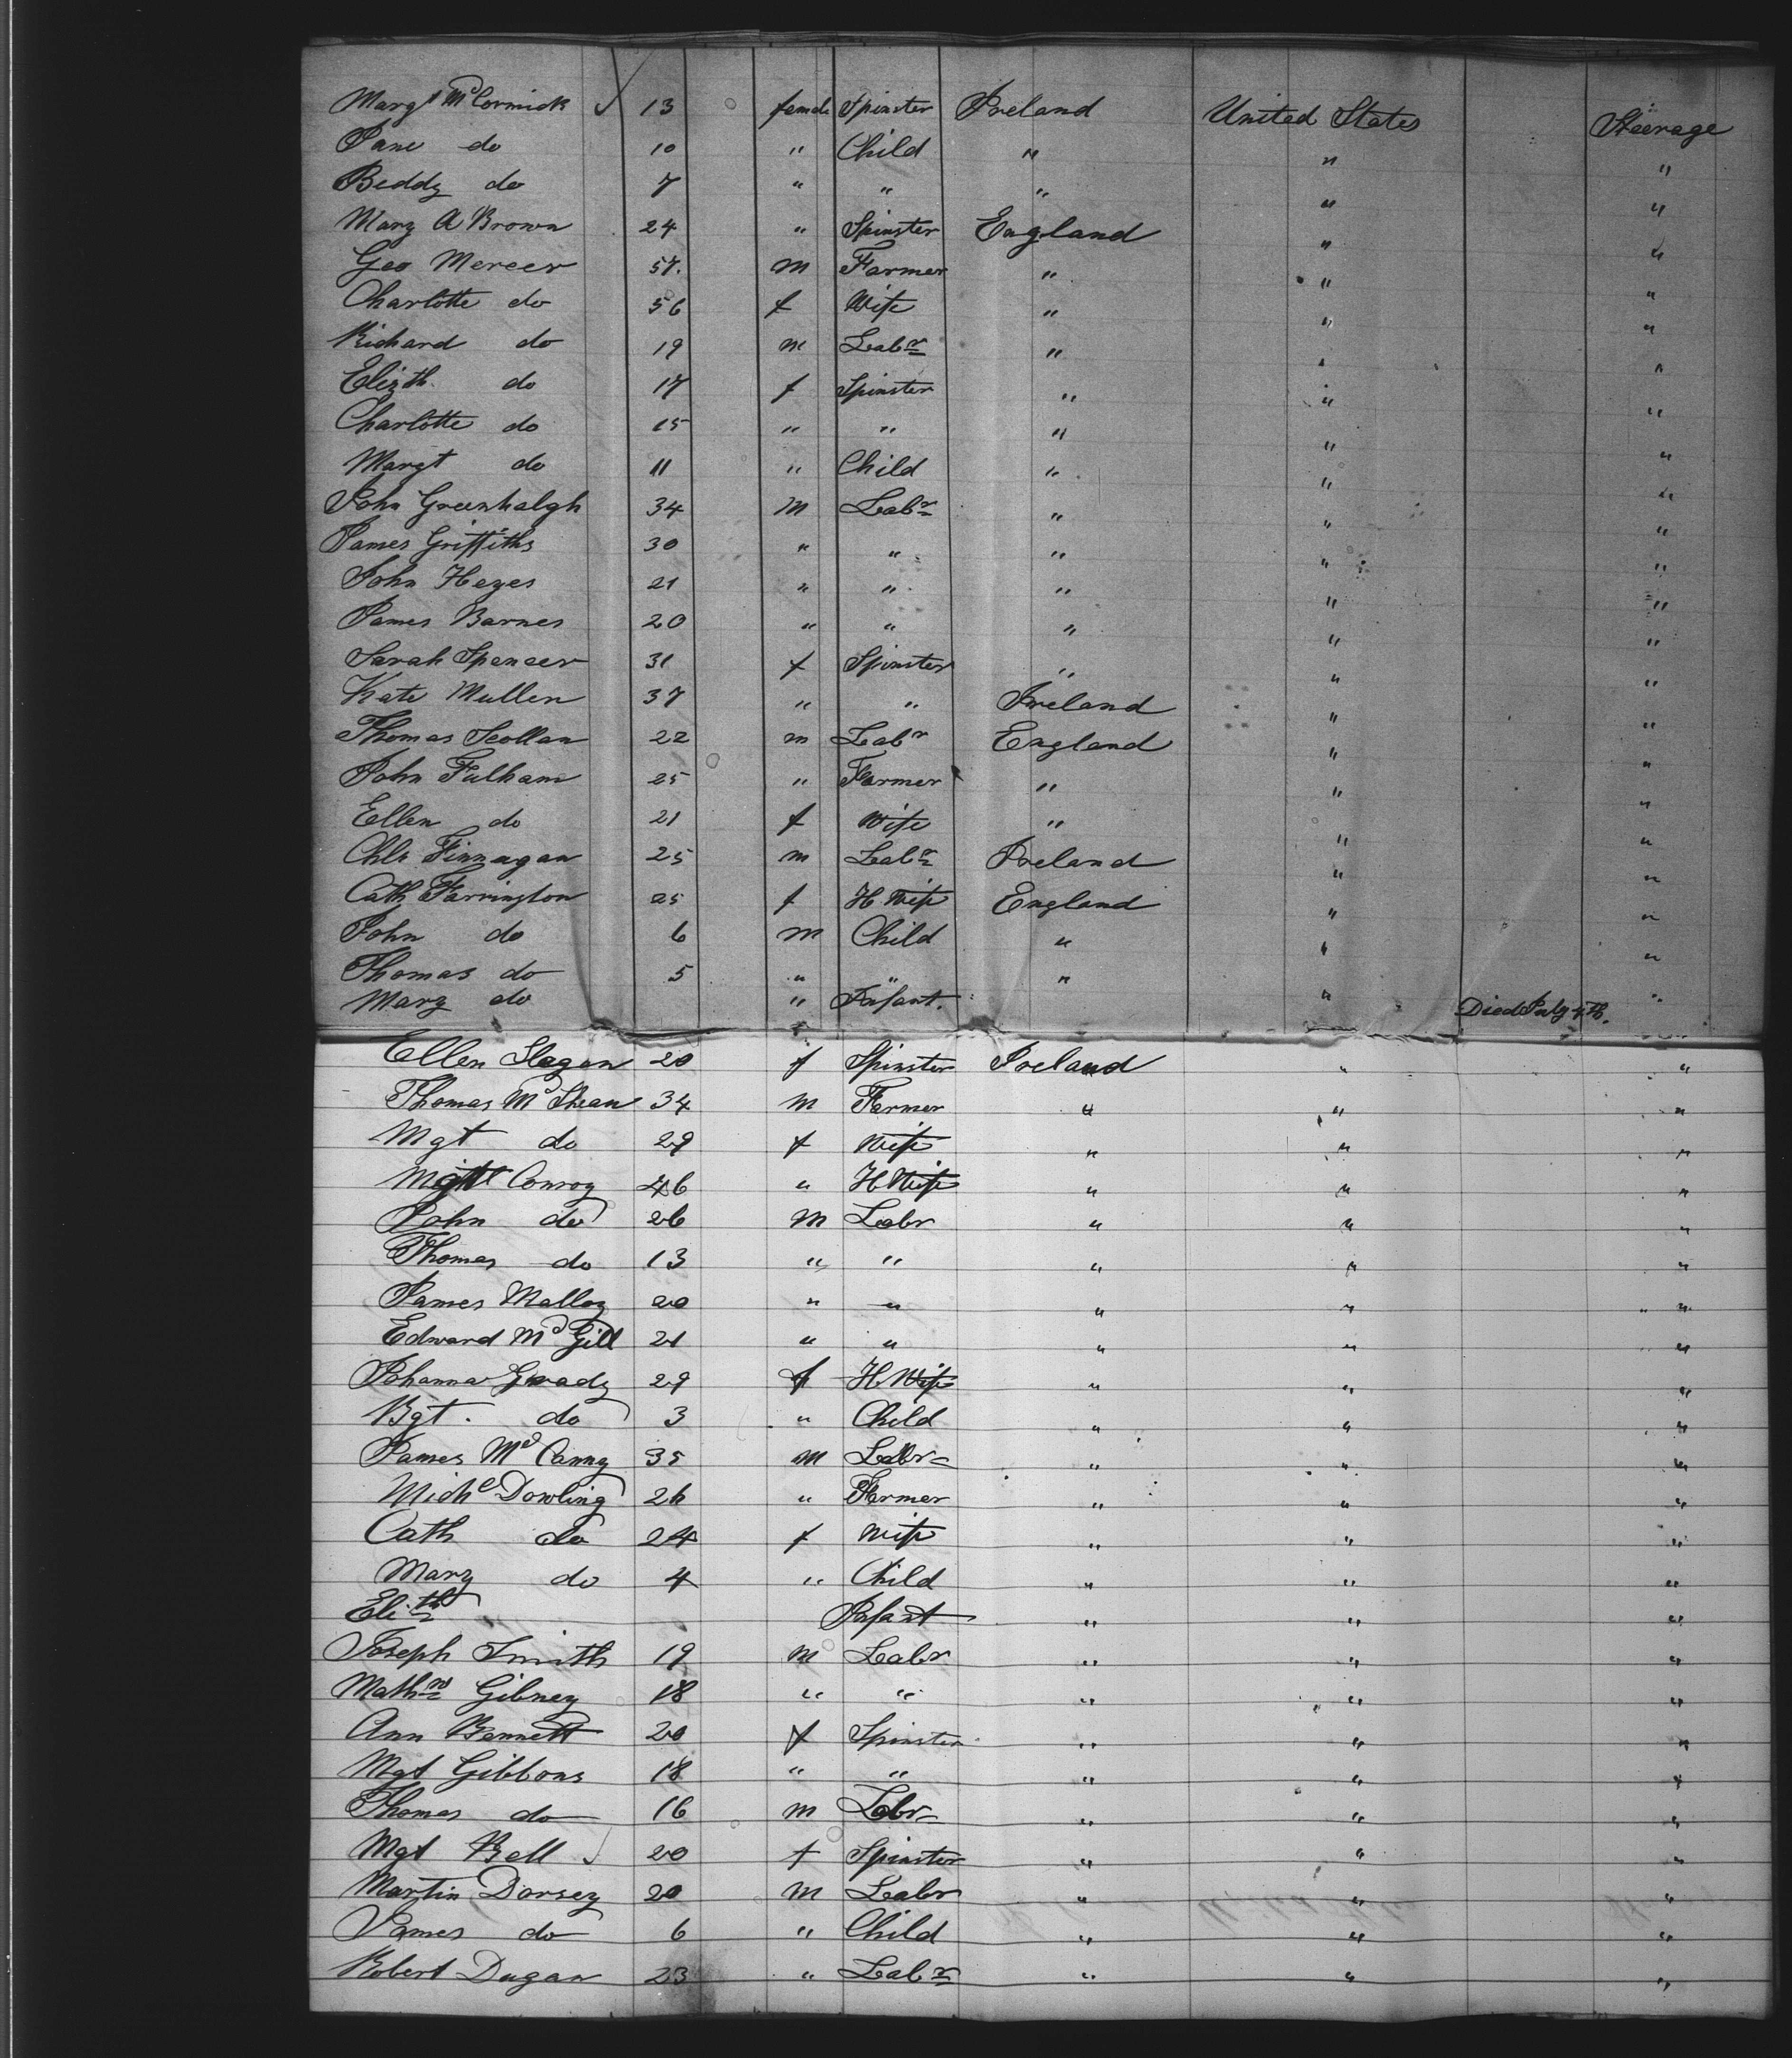 Margt McCormick 13 female Spinster Ireland United States Steerage
Jane do 10 " Child " " "
Biddy do 7 " " " " "
Mary A Brown 24 " Spinster England " "
Geo Mercer 57. m Farmer " " "
Charlotte do 56 f Wife " " "
Richard do 19 m Labr " " "
Elizth. do 17 f Spinster " " "
Charlotte do 15 " " " " "
Margt do 11 " Child " " "
John Greenhalgh 34 m Labr " " "
James Griffiths 30 " " " " "
John Heyes 21 " " " " "
James Barnes 20 " " " " "
Sarah Spencer 31 f Spinster " " "
Kate Mullen 37 " " Ireland " "
Thomas Scollan 22 m Labr England " "
John Fulham 25 " Farmer " " "
Ellen do 21 f Wife " " "
Chls Finnagan 25 m Labr Ireland " "
Cath Farrington 25 f H Wife England " "
John do 6 m Child " " "
Thomas do 5 " " " " "
Mary do " Infant. " Died July 4th. "
Ellen 20 f Spinster Ireland " "
Thomas McShean 34 m Farmer " " "
Mgt do 29 f Wife " " "
Mgt Conroy 46 " H Wife " " "
John do 26 m Labr " " "
Thomas do 13 " " " " "
James Malloy 20 " " " " "
Edward McGill 21 " " " " "
Johanna Grady 29 f H Wife " " "
Bgt. do 3 " Child " " "
James McCanny 35 m Labr " " "
Michl Dowling 26 " Farmer " " "
Cath do 24 f Wife " " "
Mary do 4 " Child " " "
Elizth Infant " " "
Joseph Smith 19 m Labr " " "
Mathw Gibney 18 " " " " "
Ann Bennett 20 f Spinster " " "
Mgt Gibbons 18 " " " " "
Thomas do 16 m Labr " " "
Mgt Bell 20 f Spinster " " "
Martin Dorsey 20 m Labr " " "
James do 6 " Child " " "
Robert Dugan 23 " Labr " " "